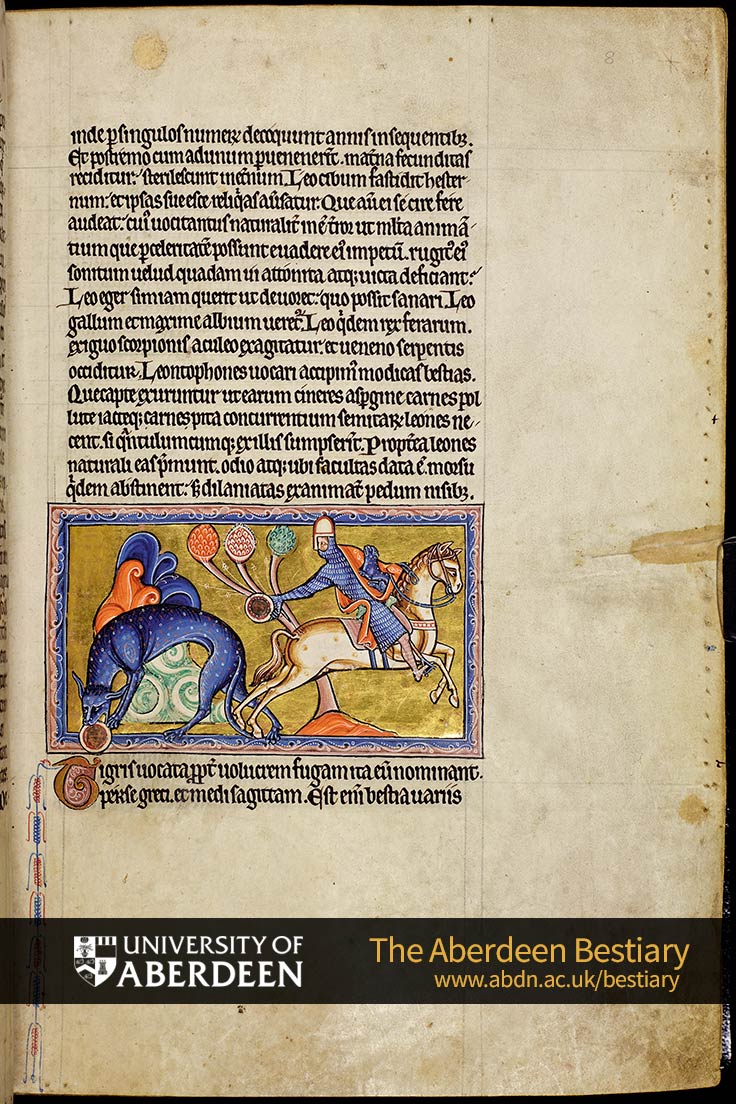 8
inde p singulos numerꝝ decoquunt annis insequentibꝫ.
Et postremo cum ad unum puenerērt. materna fecunditas
reciditur: sterilescunt ineternum. Leo cibum fastidit hester
num: et ipsas sue esce reliqͥas aūsatur. Que aūt ei se cire fere
audeat: cuiꝰ uocitantis naturalit̄ inē t̄ror ut mlta animā
tium que p celeritatē possunt euadere eiꝰ impetū. rugitꝰ eiꝰ
sonitum uelud quadam ui attonita atqꝫ uicta deficiant:
Leo eger simiam querit ut deuoret: quo possit sanari. Leo
gallum et maxime albium ueret᷑. Leo qͥdem rex ferarum.
exiguo scorpionis aculeo exagitatur: et ueneno serpentis
occiditur. Leontophones uocari accipimꝰ modicas bestias.
Que capte exuruntur ut earum cineres aspgine carnes pol
lute iacteqꝫ carnes p ita concurrentium semitaꝝ leones ne
cent. si qͣntulumcumqꝫ ex illis sumpserīt. Propt̄ea leones
naturali eas p̄munt. odio atqꝫ ubi facultas data ē. morsu
qͥdem abstinent: sꝫ dilaniatas exanimāt pedum nisibꝫ.
Tigris uocata ꝓpt̄ uolucrem fugam ita eū nominant.
perse greci. et medi sagittam. Est enī bestia uariis
UNIVERSITY OF
ABERDEEN
The Aberdeen Bestiary
www.abdn.ac.uk/bestiary